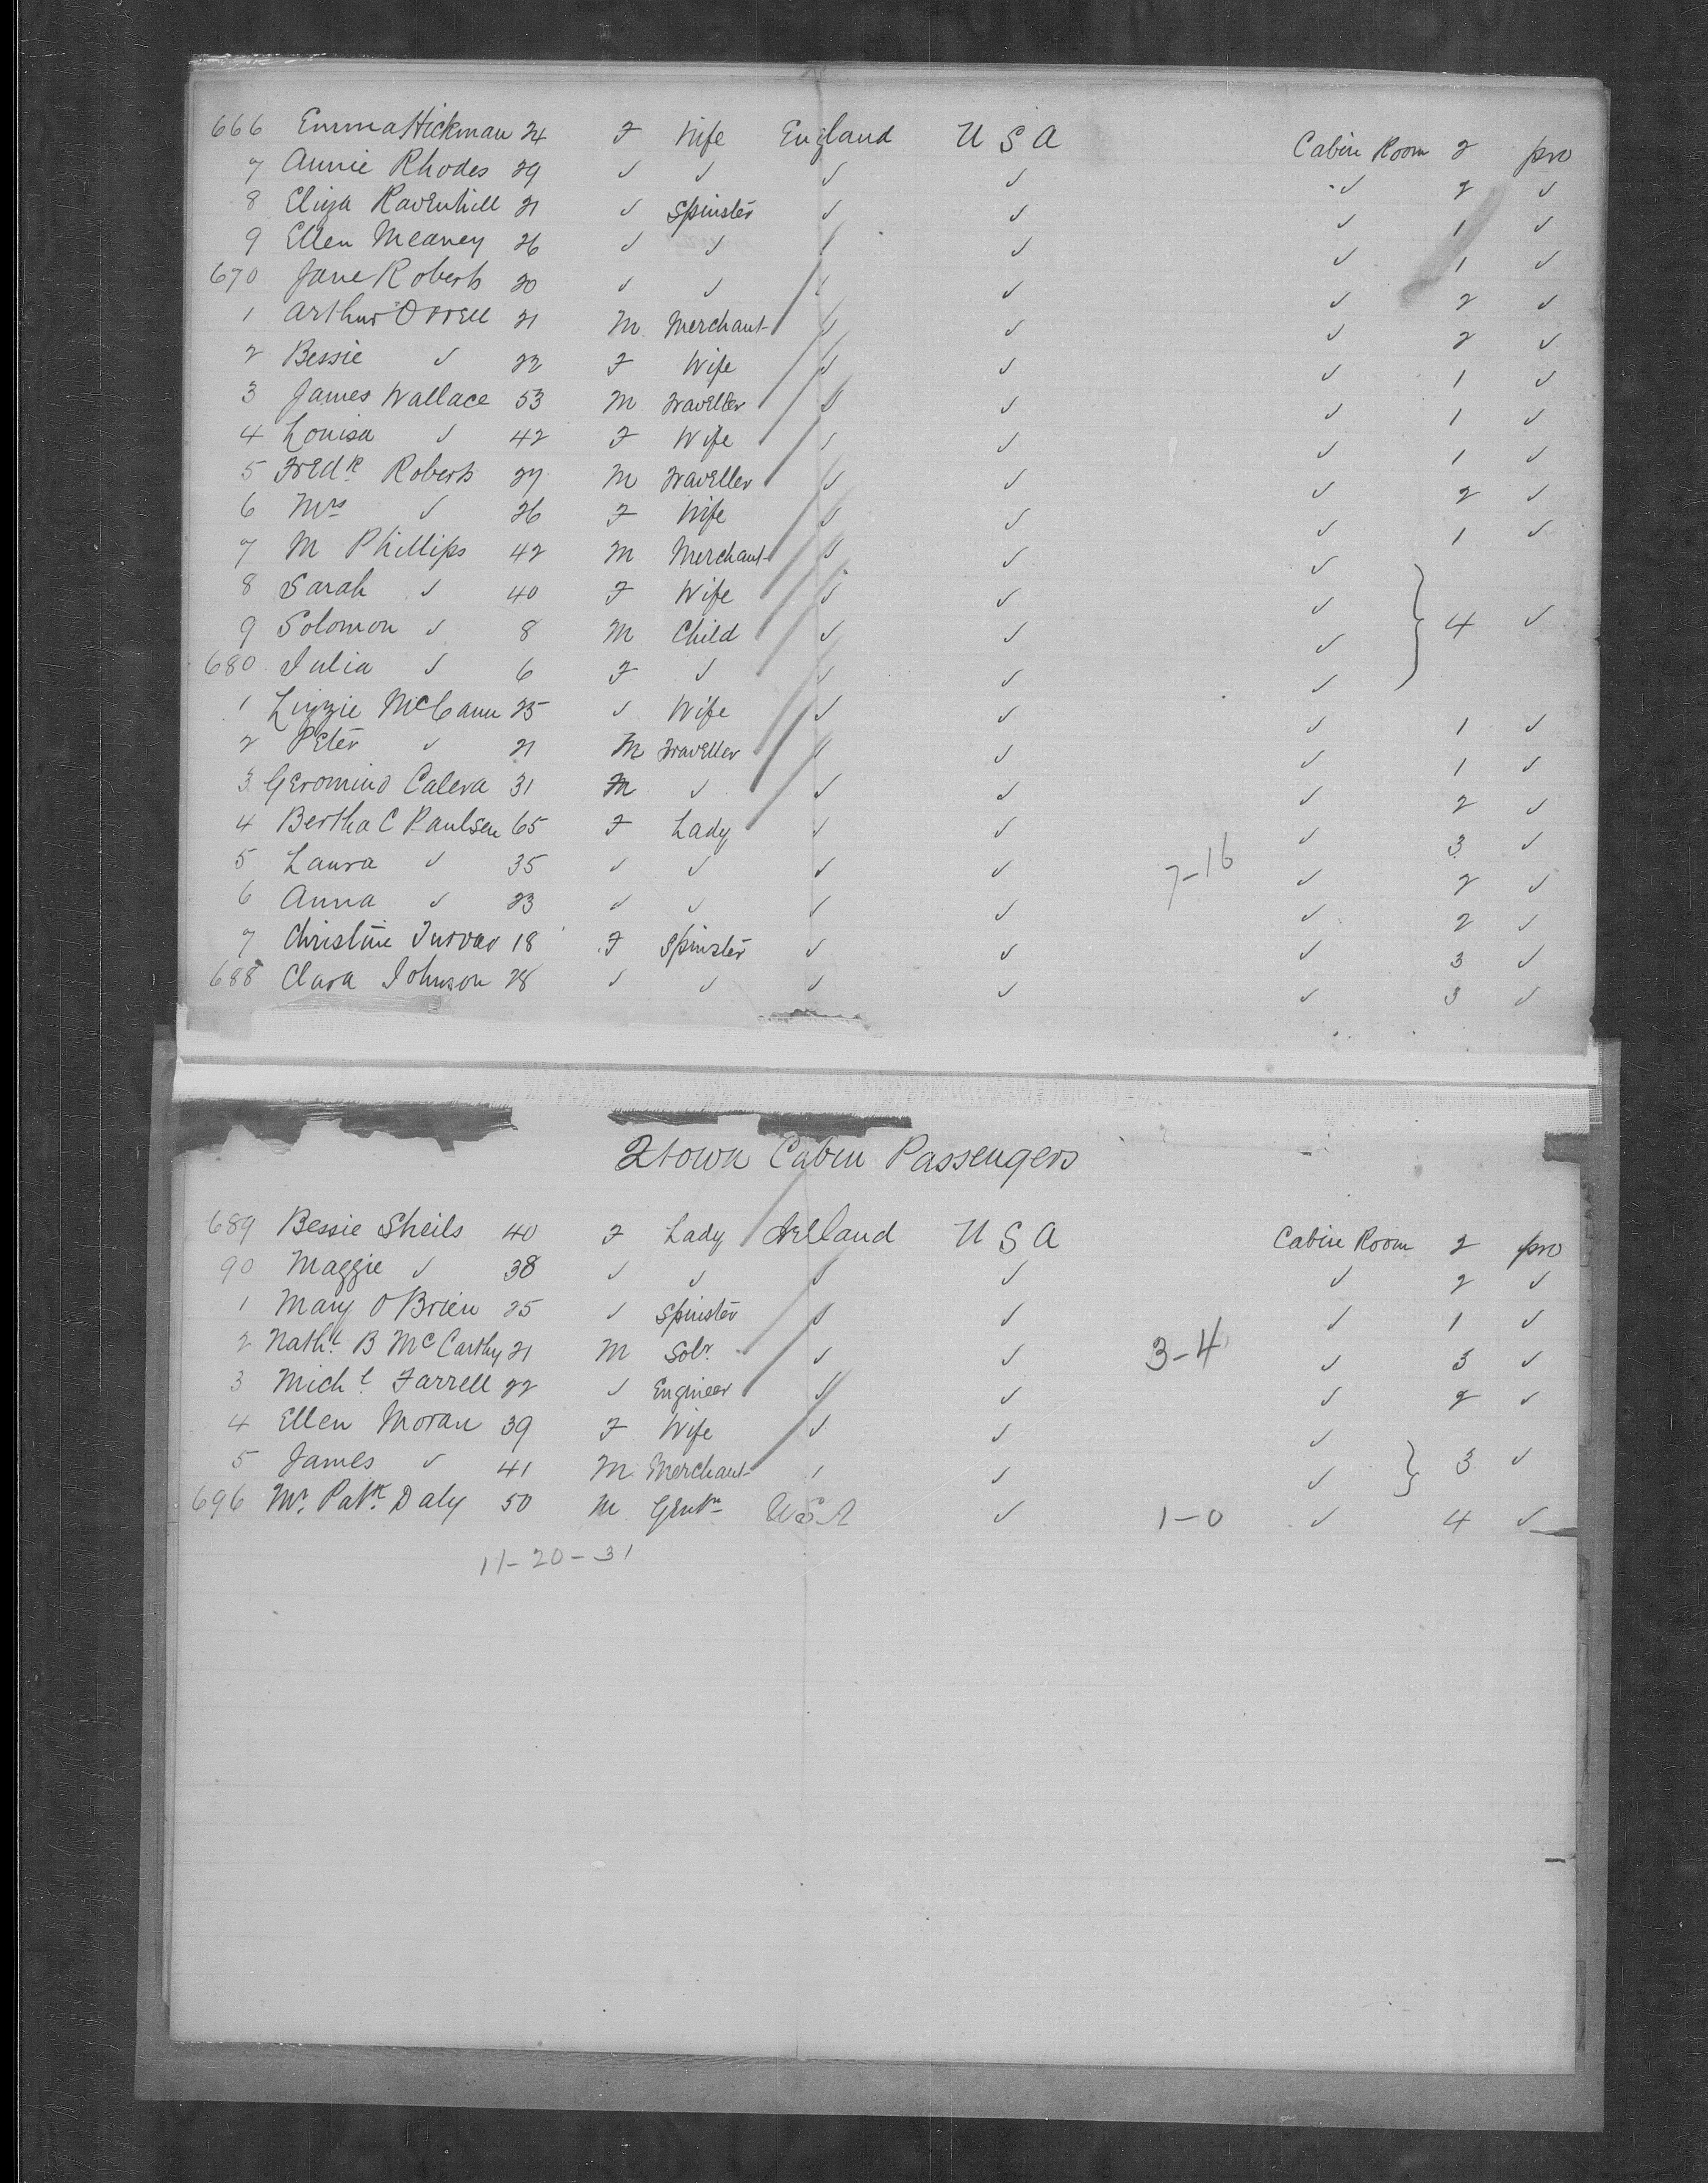 666 Emma Hickman 24 F Wife England U S A Cabin Room 2 pro
7 Annie Rhodes 29 ✓ ✓ ✓ ✓ ✓ 2 ✓
8 Eliza Ravenhill 21 ✓ Spinster ✓ ✓ ✓ 1 ✓
9 Ellen Meaney 26 ✓ ✓ ✓ ✓ ✓ 1 ✓
670 Jane Roberts 20 ✓ ✓ ✓ ✓ ✓ 2 ✓
1 Arthur Orrell 21 M Merchant ✓ ✓ ✓ 2 ✓
2 Bessie ✓ 22 F Wife ✓ ✓ ✓ 1 ✓
3 James Wallace 53 M Traveller ✓ ✓ ✓ 1 ✓
4 Louisa ✓ 42 F Wife ✓ ✓ ✓ 1 ✓
5 Fredk Roberts 27 M Traveller ✓ ✓ ✓ 2 ✓
6 Mrs ✓ 26 F Wife ✓ ✓ ✓ 1 ✓
7 M Phillips 42 M Merchant ✓ ✓ ✓
8 Sarah ✓ 40 F Wife ✓ ✓ ✓
9 Solomon ✓ 8 M Child ✓ ✓ ✓ } 4 ✓
680 Julia ✓ 6 F ✓ ✓ ✓ ✓
1 Lizzie McCann 25 ✓ Wife ✓ ✓ ✓ 1 ✓
2 Peter ✓ 21 M Traveller ✓ ✓ ✓ 1 ✓
3 Geromino Calera 31 M ✓ ✓ ✓ ✓ 2 ✓
4 Bertha C Paulsen 65 F Lady ✓ ✓ ✓ 3 ✓
5 Laura ✓ 35 ✓ ✓ ✓ ✓ 7-16 ✓ 2 ✓
6 Anna ✓ 23 ✓ ✓ ✓ ✓ ✓ 2 ✓
7 Christine 18 F Spinster ✓ ✓ ✓ 3 ✓
688 Clara Johnson 28 ✓ ✓ ✓ ✓ ✓ 3 ✓
Qtown Cabin Passengers
689 Bessie Sheils 40 F Lady U S A Cabin Room 2 pro
90 Maggie ✓ 38 ✓ ✓ ✓ ✓ ✓ 2 ✓
1 Mary O'Brien 25 ✓ Spinster ✓ ✓ ✓ 1 ✓
2 Nathl B McCarthy 21 M Solr ✓ ✓ 3-4 ✓ 3 ✓
3 Michl Farrell 22 ✓ Engineer ✓ ✓ ✓ 2 ✓
4 Ellen Moran 39 F Wife ✓ ✓ ✓
5 James ✓ 41 M Merchant ✓ ✓ ✓ } 3 ✓
696 Mr Patk Daly 50 M Gentn USA ✓ 1-0 ✓ 4 ✓
11-20-31